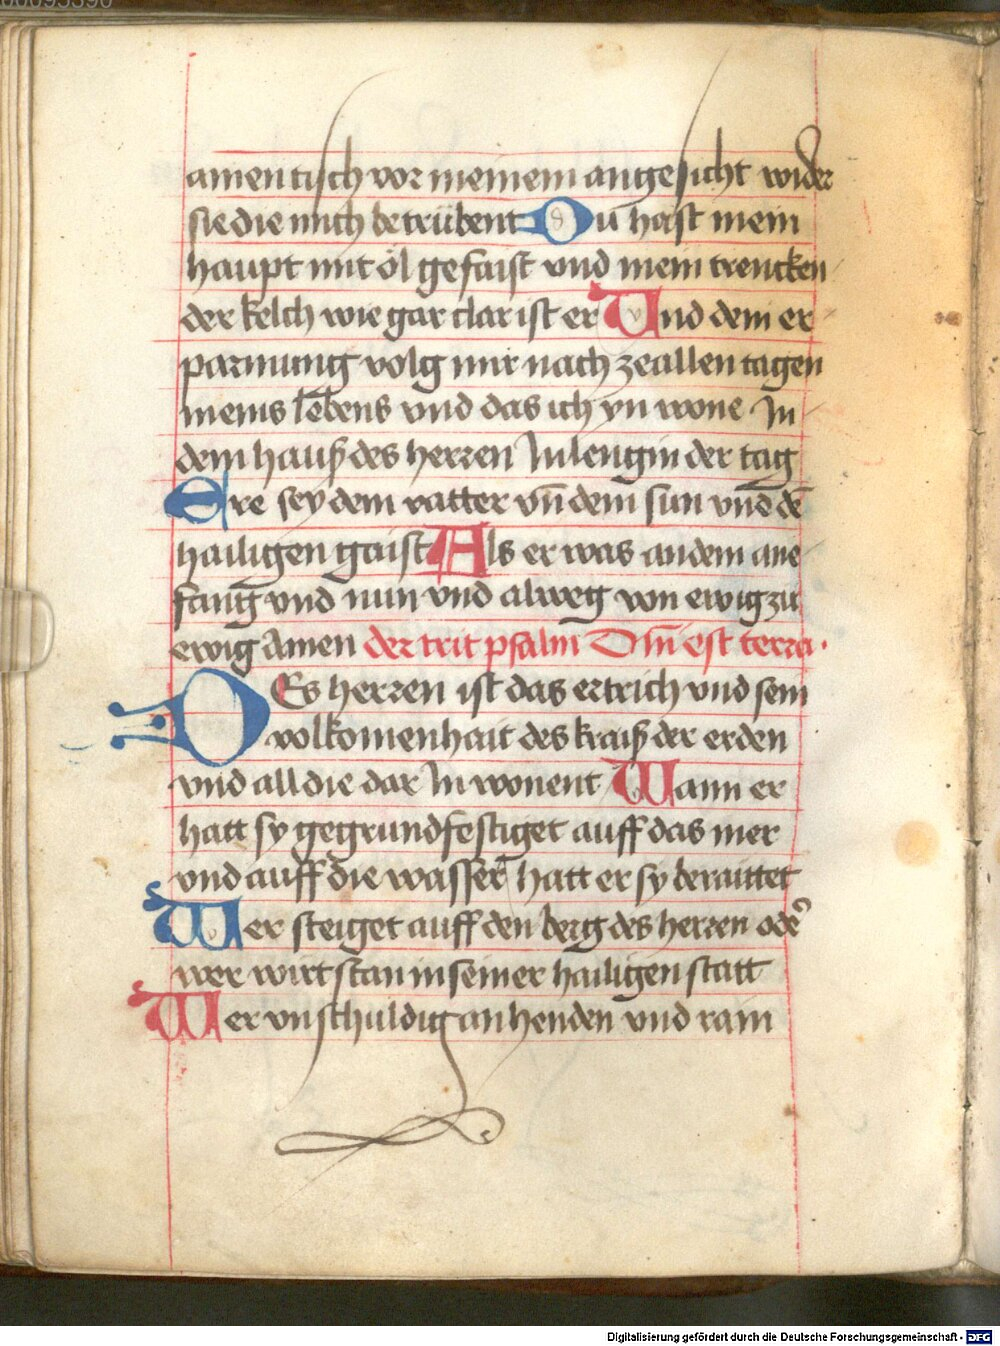 amen tisch vor meinem angesicht wider
sie die mich betrübent Du hast mein
haupt mit öl gefaist vnd mein trencken
der kelch wie gar clar ist er Vnd dem er
parmung volg mir nach ze allen tagen
meins lebens vnd das ich yn wone In
dem hauß des herren In lengin der tag
Ere sey dem vatter vn̄ dem sun vnd dē
hailigen gaist Als er was an dem ane
fang vnd nun vnd alweg von ewig zu
ewig Amen der trit psalm Dn̄i est terra.
DEs herren ist das ertrich vnd sein
volkomenhait des kraiß der erden
vnd all die dar In wonent Wann er
hatt sy gegrundfestiget auff das mer
vnd auff die wasser hatt er sy beraittet
Wer steiget auff den berg des herren ode᾽
wer wirt stan in seiner hailigen statt
Wer vnschuldig an henden vnd rain
Digitalisierung gefördert durch die Deutsche Forschungsgemeinschaft - DFG